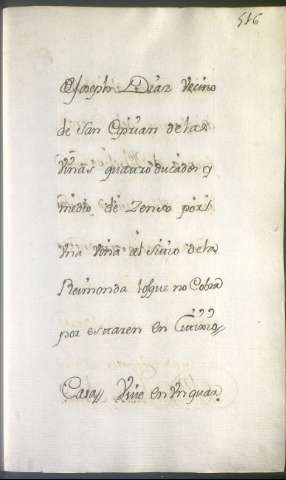 546
Joseph Diaz Vecino
de San Ciprian de las
Viñas quatro ducados y
medio de Zenso por
Vna Viña al sitio de la
Reimonda los que no Cobra
por estar en
Casa Viue en Vn quar